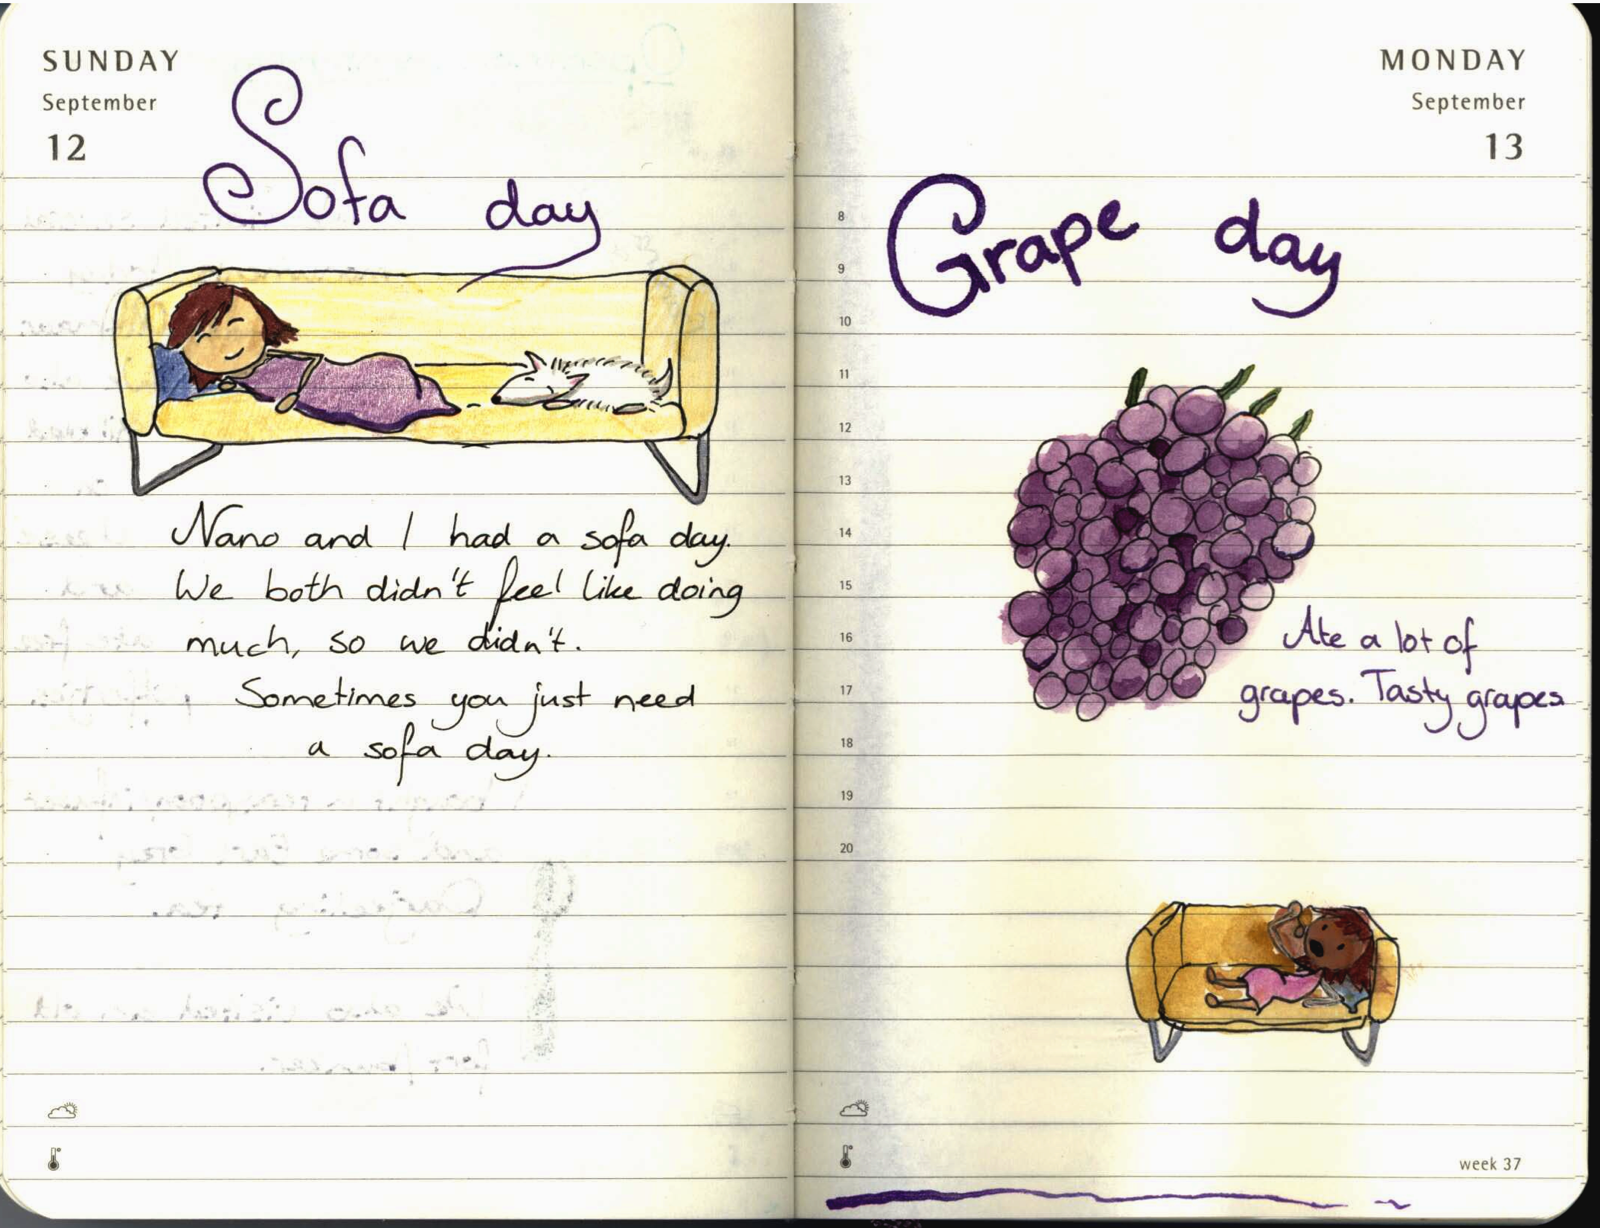 SUNDAY
September
12
Sofa day
Nano and I had a sofa day.
We both didn't feel like doing
much, so we didn't.
Sometimes you just need
a sofa day.
MONDAY
September
13
Grape day
8
9
10
11
12
13
14
15
16
17
18
19
20
Ate a lot of
grapes. Tasty grapes
week 37